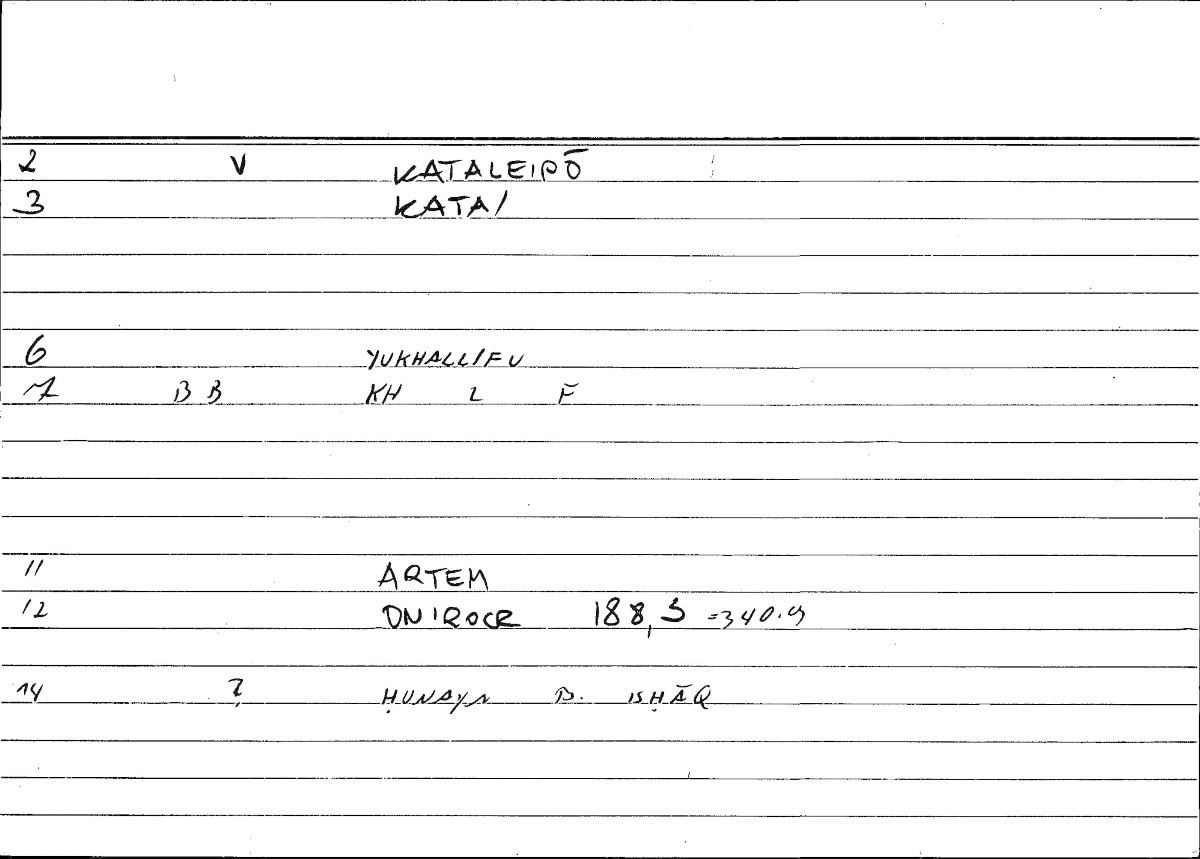 2 V KATALEIPŌ
3 KATA/
6 YUKHALLIFU
7 B B KH L F
11 ARTEM
12 ONIROCR 188,5 =340.9
14 HUNAYN B. ISḤĀQ